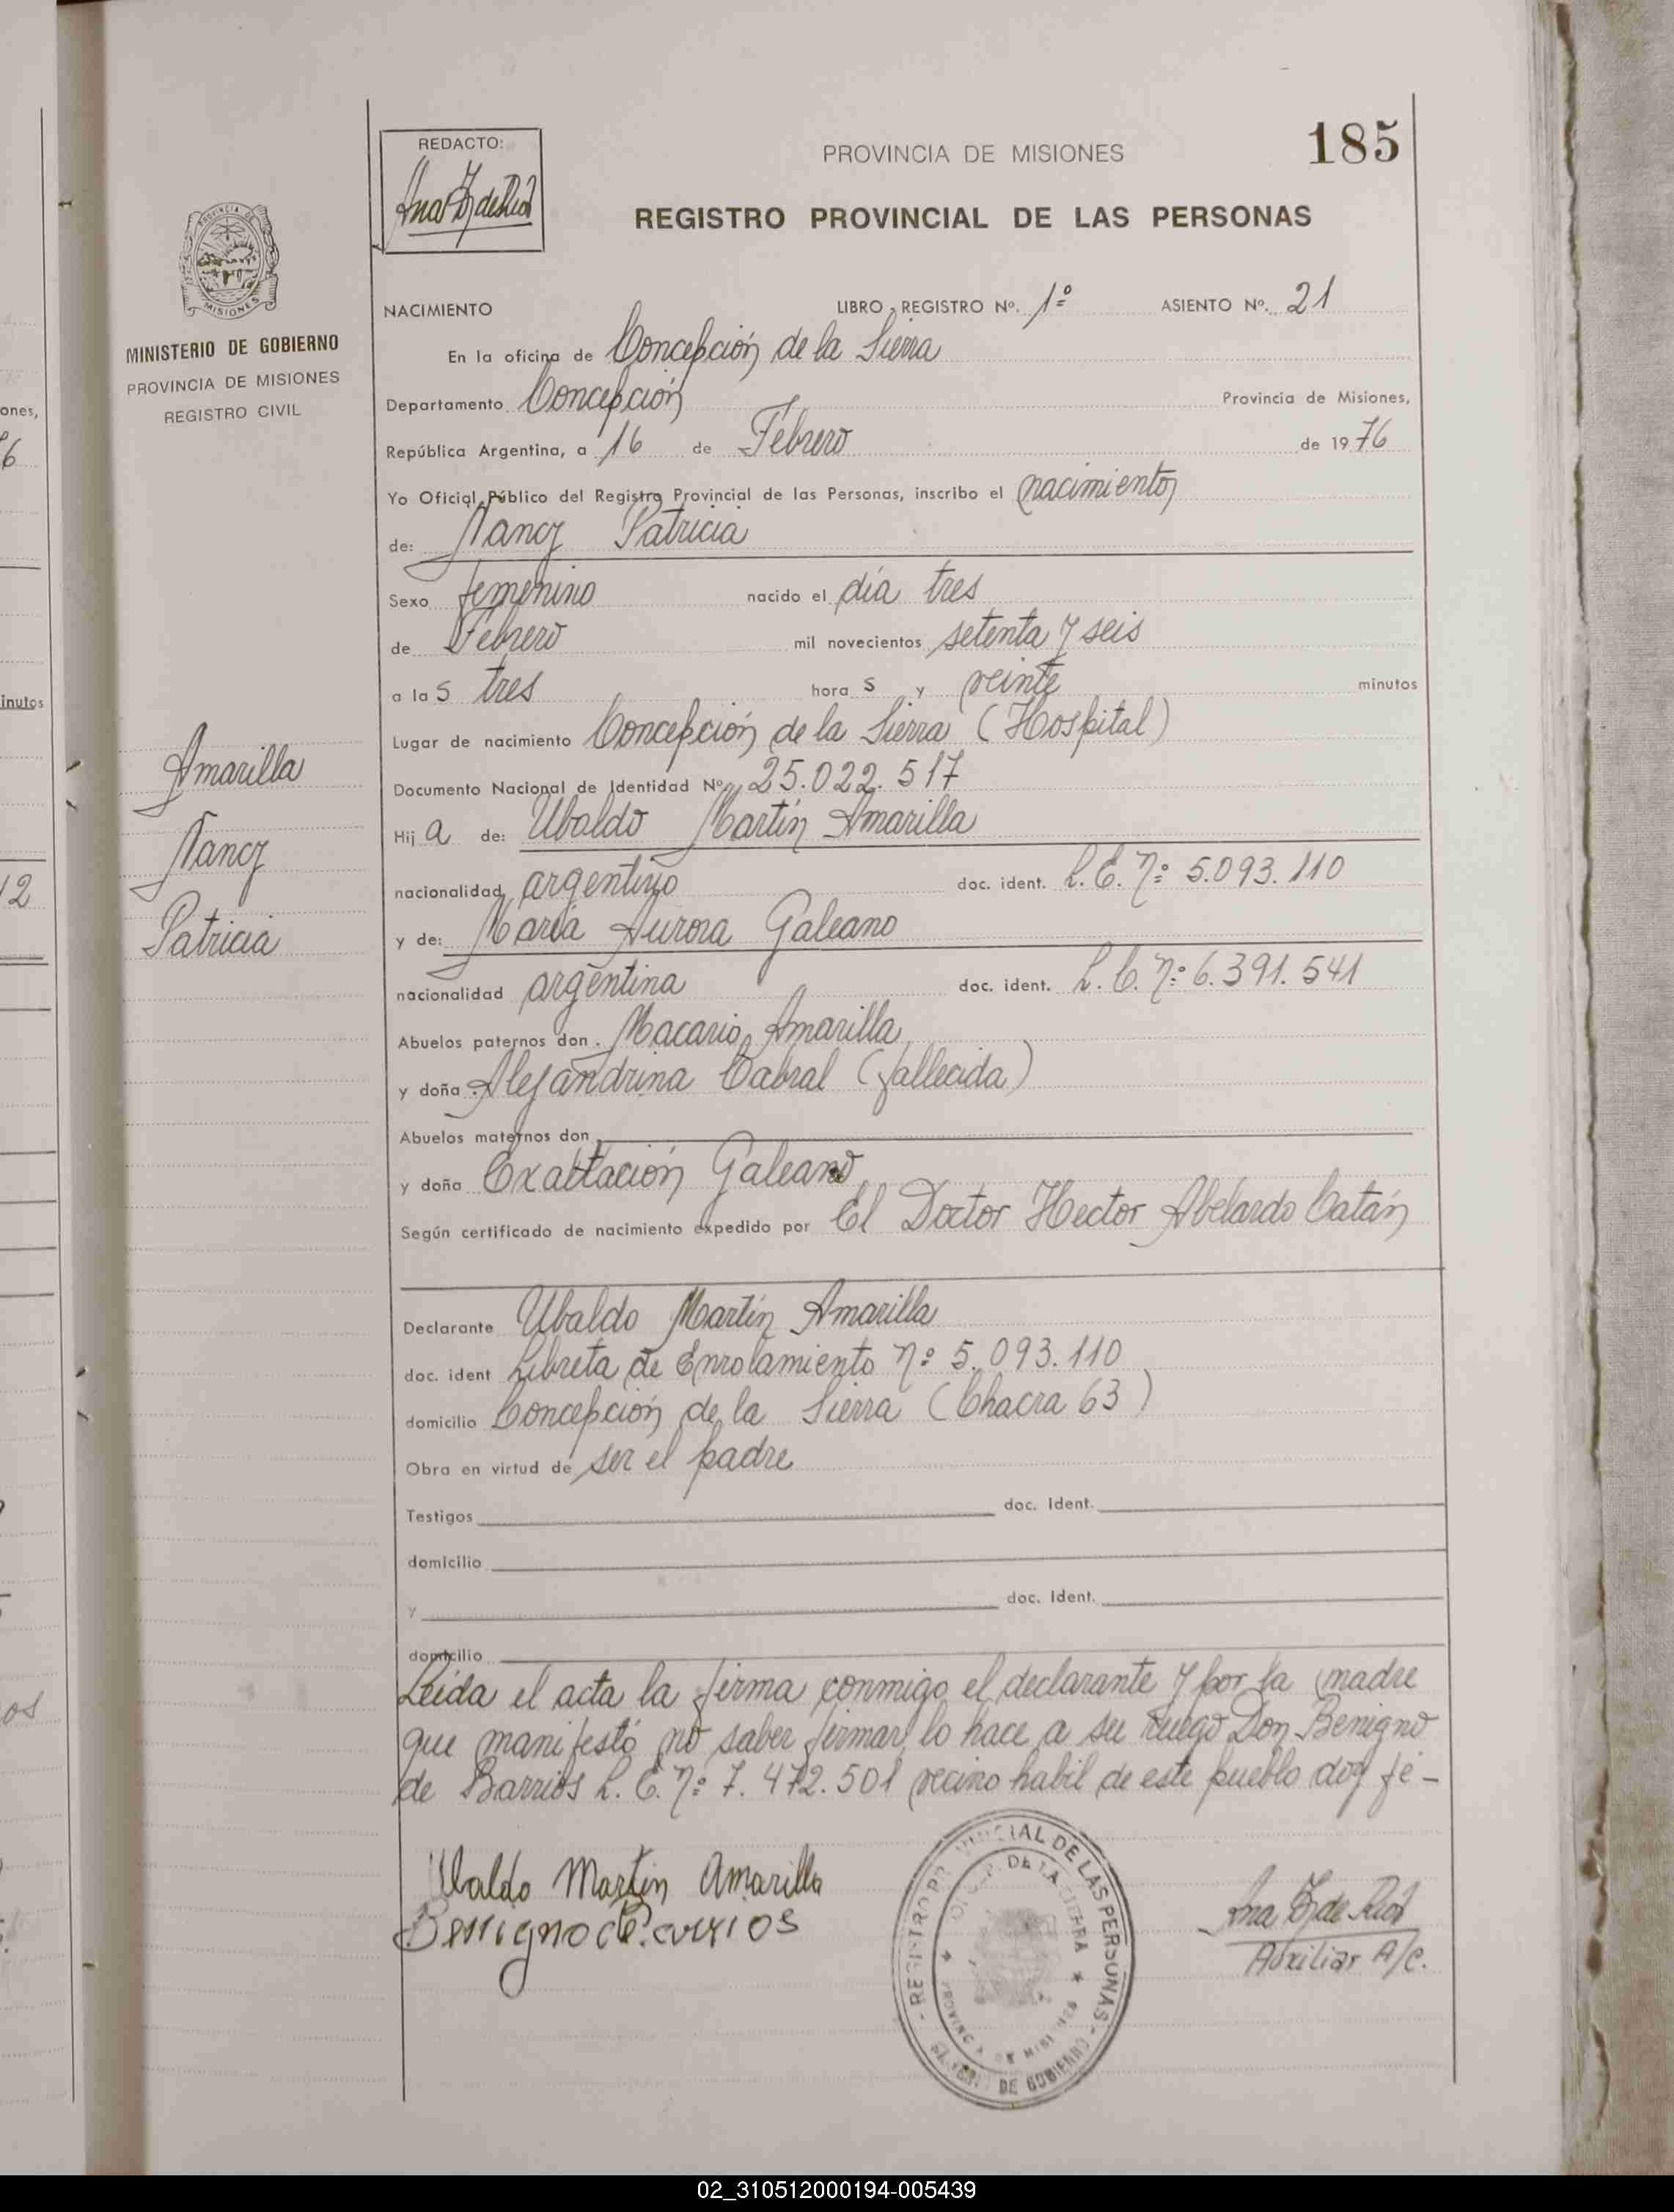 185
REDACTO:
PROVINCIA DE MISIONES
REGISTRO PROVINCIAL DE LAS PERSONAS
PROVINCIA DE MISIONES
MINISTERIO DE GOBIERNO
PROVINCIA DE MISIONES
REGISTRO CIVIL
NACIMIENTO LIBRO - REGISTRO Nº. 1º ASIENTO Nº. 21
En la oficina de Concepción de la Sierra
Departamento Concepción Provincia de Misiones,
República Argentina, a 16 de Febrero de 1976
Yo Oficial Público del Registro Provincial de las Personas, inscribo el nacimiento
de: Nancy Patricia
Sexo femenino nacido el día tres
de Febrero mil novecientos setenta y seis
a las tres horas y veinte minutos
Lugar de nacimiento Concepción de la Sierra (Hospital)
Documento Nacional de Identidad Nº 25.022.517
Hija de: Ubaldo Martín Amarilla
nacionalidad argentino doc. ident. L.E. Nº 5.093.110
y de: María Aurora Galeano
nacionalidad argentina doc. ident. L.C. Nº 6.391.541
Abuelos paternos don Macario Amarilla
y doña Alejandrina Cabral (fallecida)
Abuelos maternos don
y doña Exaltación Galeano
Según certificado de nacimiento expedido por El Doctor Hector Abelardo Catán
Amarilla
Nancy
Patricia
Declarante Ubaldo Martín Amarilla
doc. ident Libreta de Enrolamiento Nº 5.093.110
domicilio Concepción de la Sierra (Chacra 63)
Obra en virtud de ser el padre
Testigos doc. Ident.
domicilio
y doc. Ident.
domicilio
Leída el acta la firma conmigo el declarante y por la madre
que manifestó no saber firmar, lo hace a su ruego Don Benigno
de Barrios L.E. Nº 7.472.501 vecino habil de este pueblo doy fé-
Ubaldo Martin Amarilla
Benigno de Barrios
Auxiliar A/C.
DE LAS PERSONAS
DE LA SIERRA
DE GOBIERNO
02_310512000194-005439